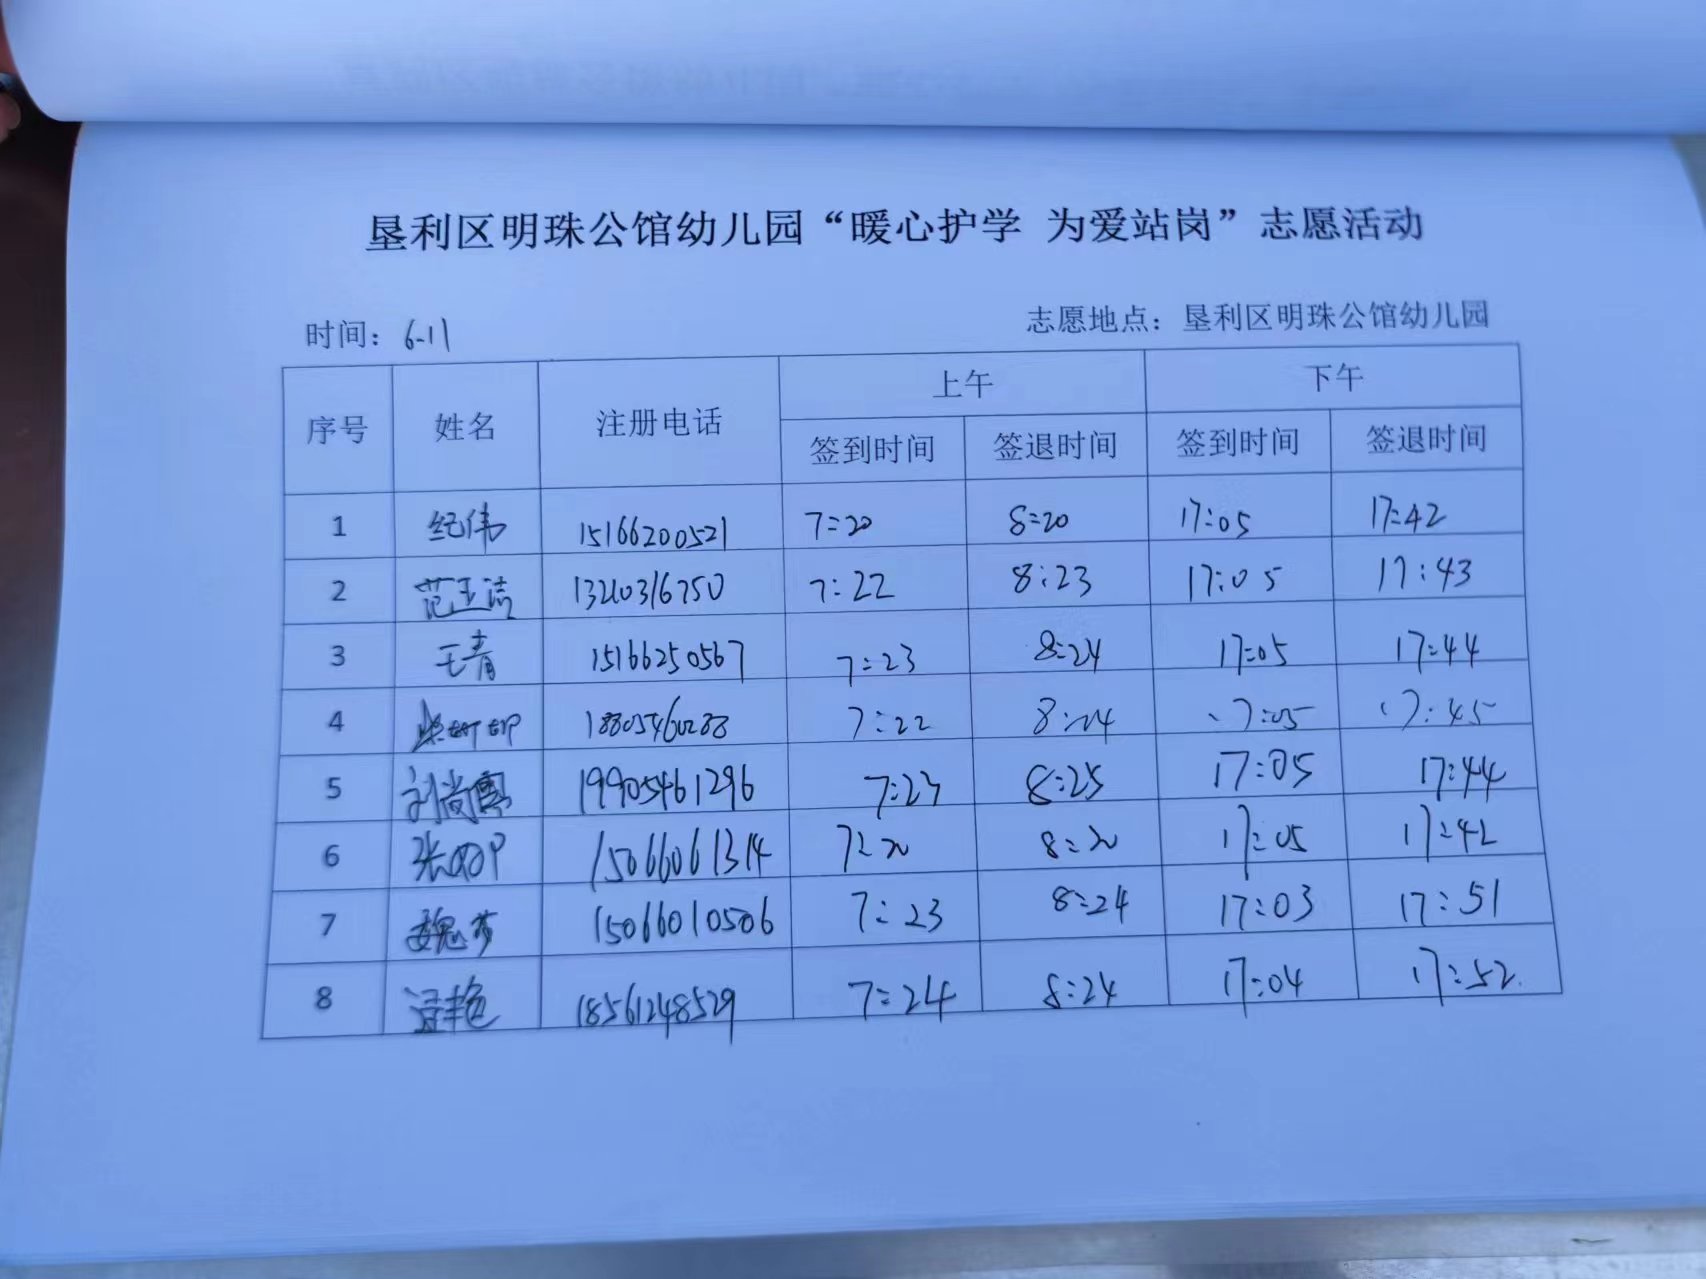 垦利区明珠公馆幼儿园“暖心护学 为爱站岗”志愿活动
时间：6-11 志愿地点：垦利区明珠公馆幼儿园
序号 姓名 注册电话 上午 下午
签到时间 签退时间 签到时间 签退时间
1 纪伟 15166200521 7:20 8:20 17:05 17:42
2 范玉洁 13210316750 7:22 8:23 17:05 17:43
3 王青 15166250567 7:23 8:24 17:05 17:44
4 18805460288 7:22 8:24 17:05 17:45
5 刘尚 19905461296 7:23 8:25 17:05 17:44
6 张 15066061314 7:20 8:20 17:05 17:42
7 魏梦 15066010506 7:23 8:24 17:03 17:51
8 艳 18561248529 7:24 8:24 17:04 17:52